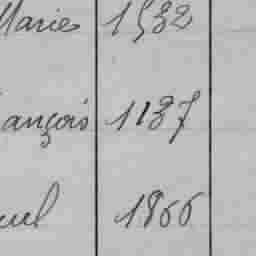 Marie 1832
ançois 1837
uel 1866